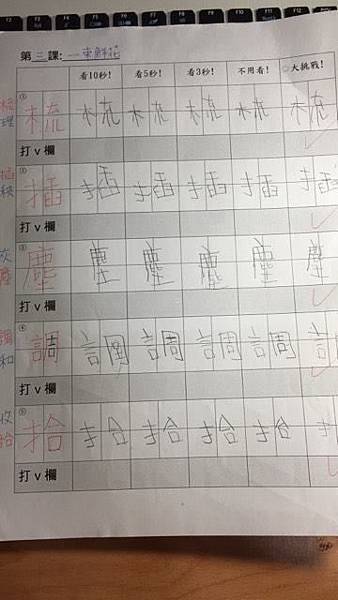 第二課:一束鮮花
看10秒! 看5秒! 看3秒! 不用看! 大挑戰!
梳理 ① 梳 梳 梳 梳 梳 梳
打v欄
插秧 ② 插 插 插 插 插 插
打v欄
灰塵 ③ 塵 塵 塵 塵 塵 塵
打v欄
調和 ④ 調 調 調 調 調 言
打v欄
收拾 ⑤ 拾 拾 拾 拾 拾 扌
打v欄